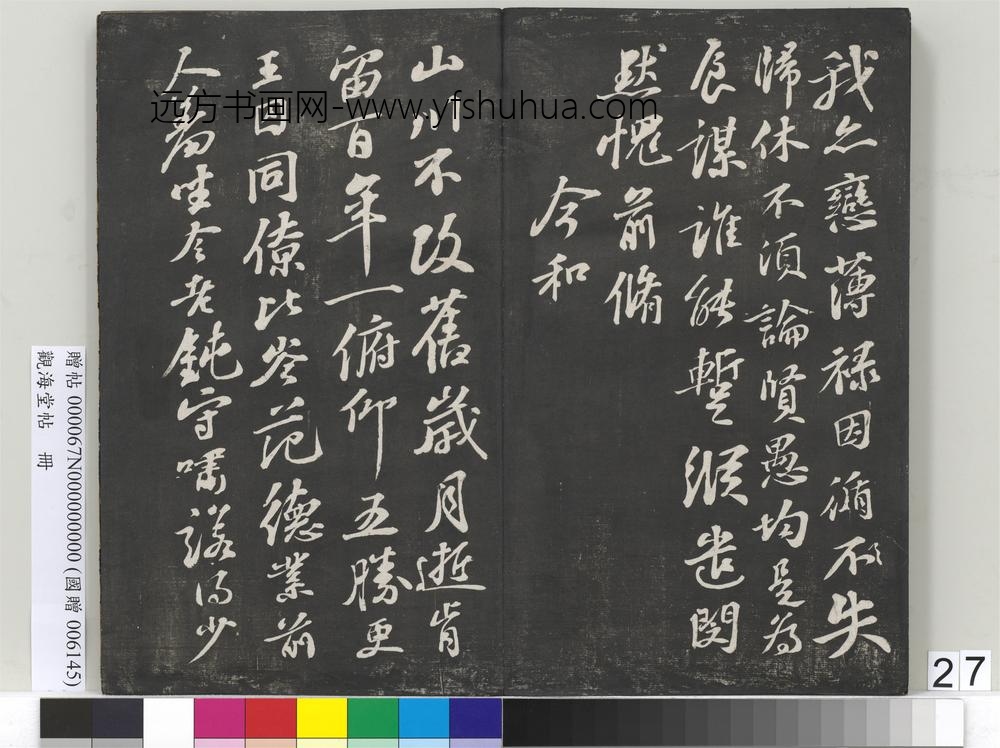 我亦戀薄祿因循不失
歸休不須論賢愚均是為
食謀誰能暫縱遣閔
默愧前脩
今和
山川不改舊歲月逝肯
留百年一俯仰五勝更
王囚同僚比岑范德業前
人羞坐令老鈍守嘯諾得少
远方书画网-www.yfshuhua.com
贈帖 000067N000000000 (國贈 006145)
觀海堂帖 冊
27